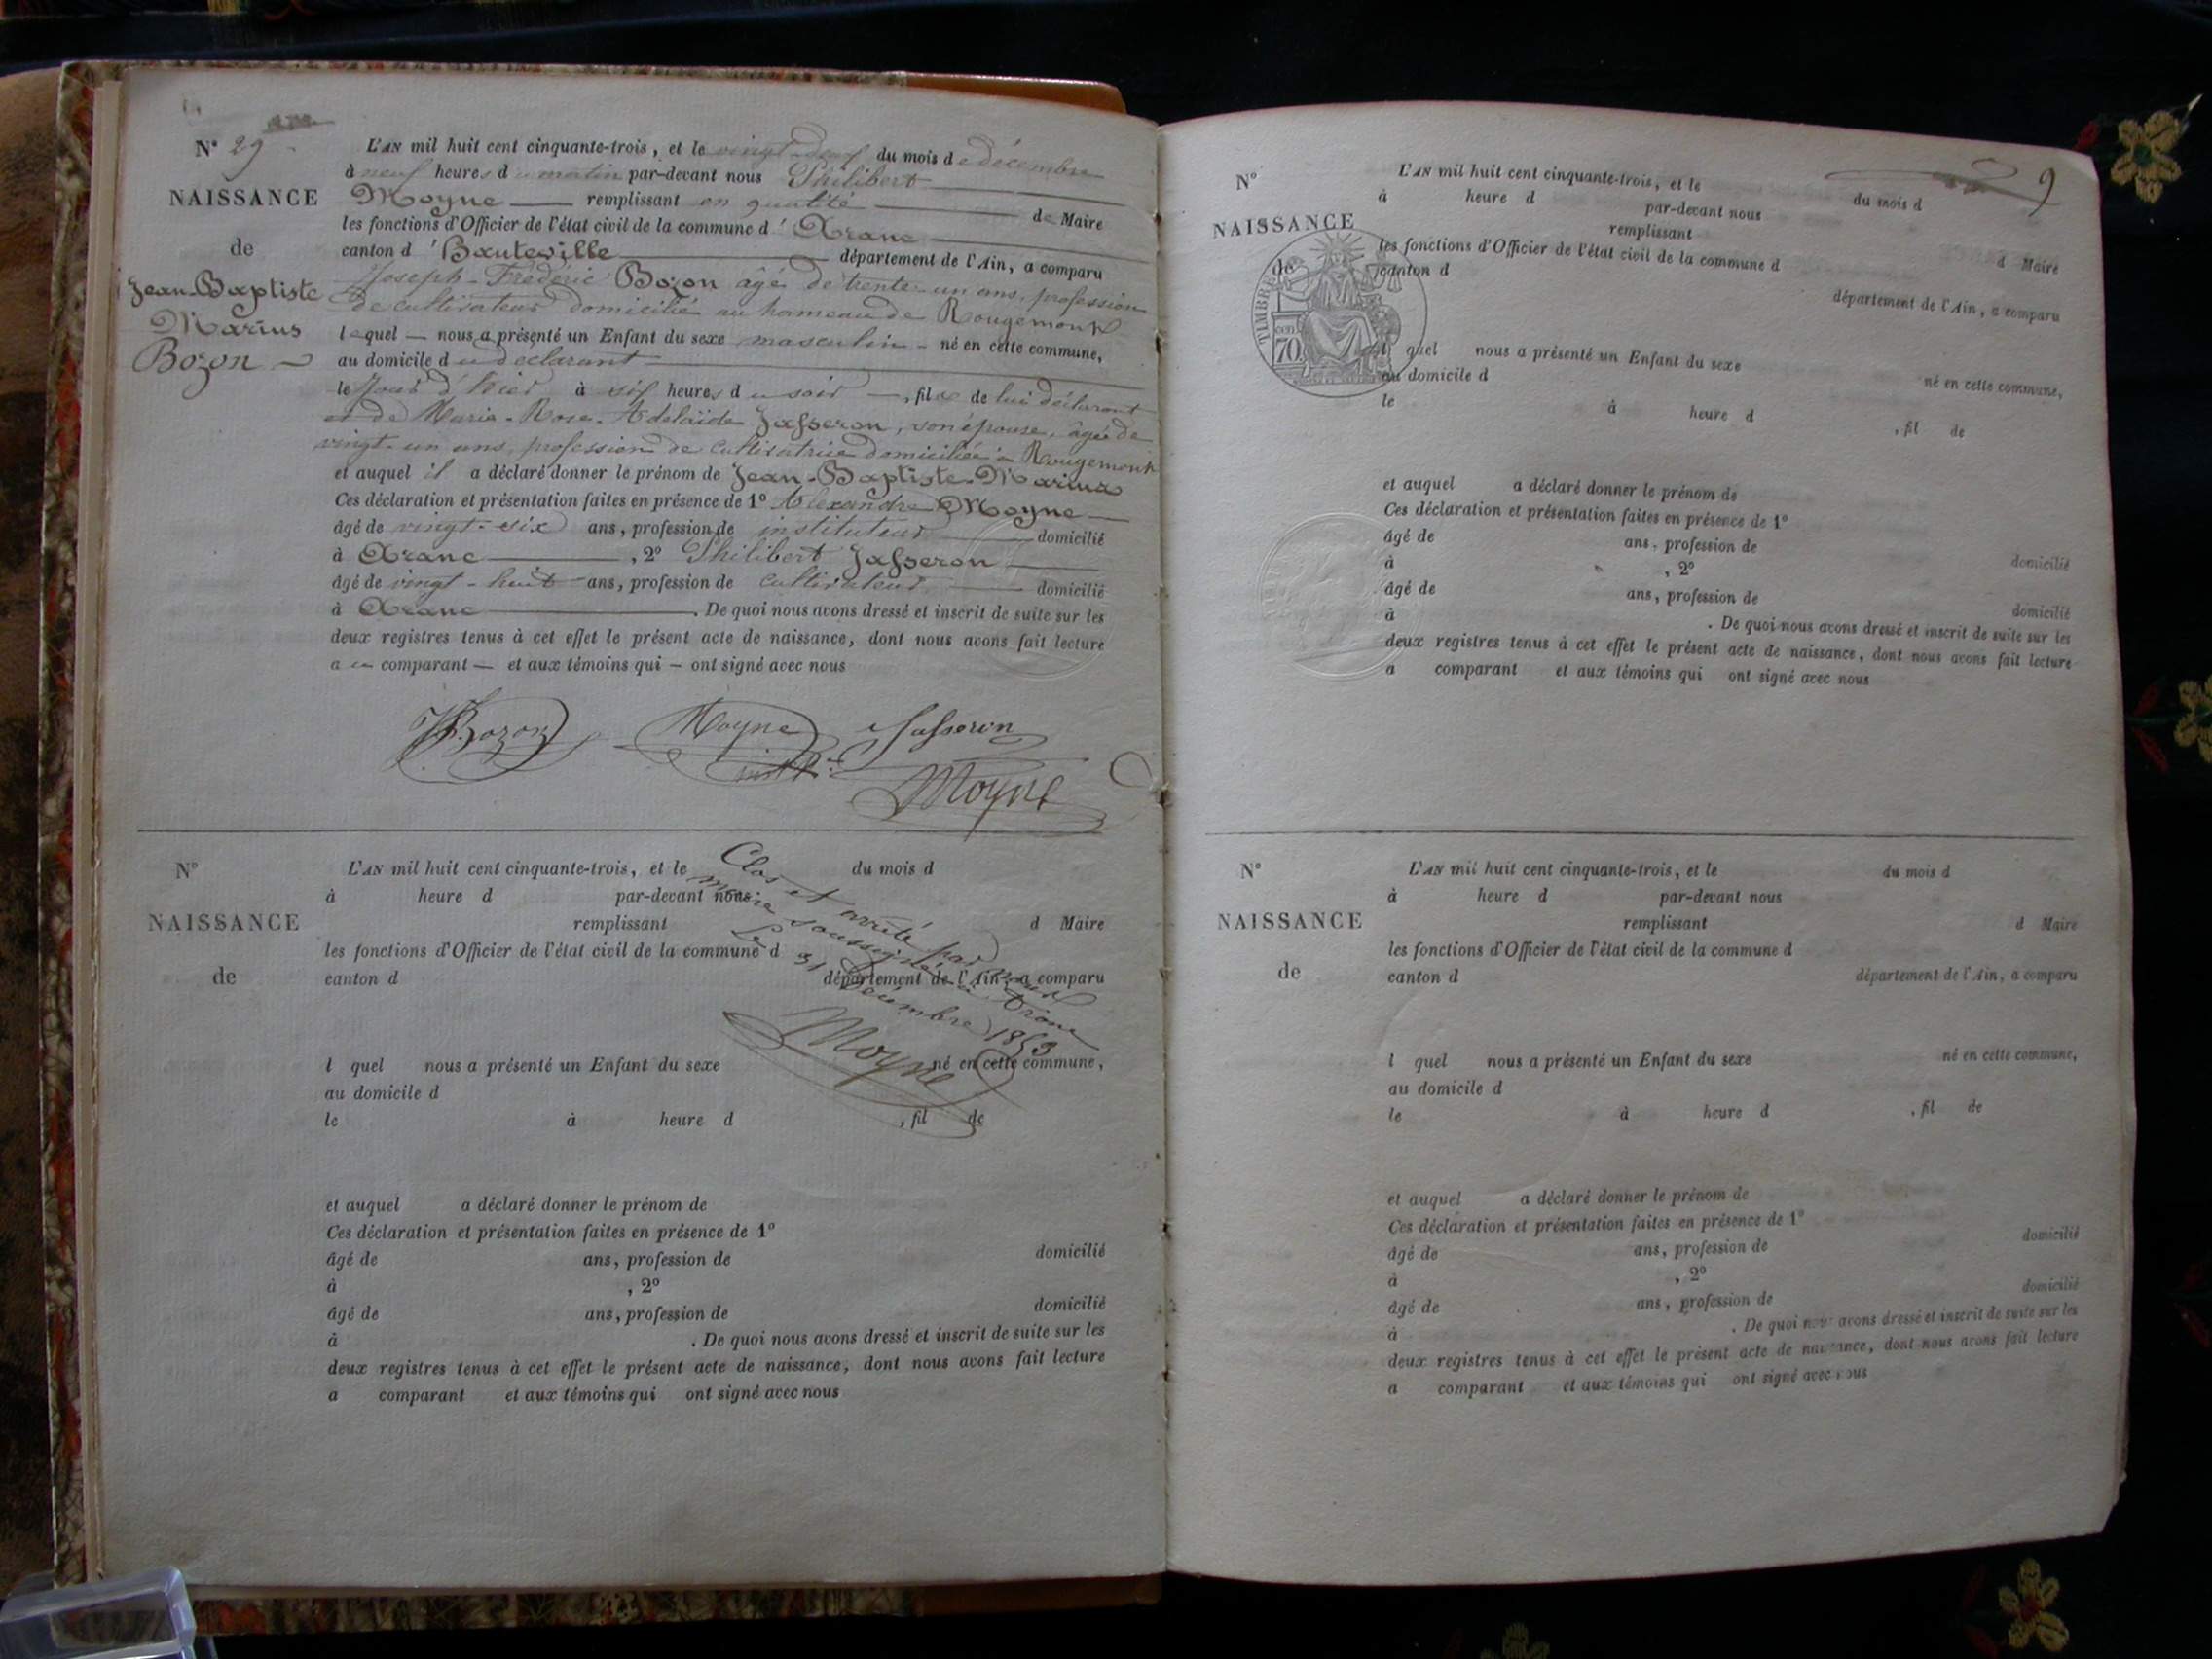 N° 29
NAISSANCE
de
Jean-Baptiste
Marius
Bozon
L'AN mil huit cent cinquante-trois, et le vingt-neuf du mois de décembre
à neuf heures du matin par-devant nous Philibert
Moyne remplissant en qualité de Maire
les fonctions d'Officier de l'état civil de la commune d'Aranc
canton d'Hauteville département de l'Ain, a comparu
Joseph-Frédéric Bozon âgé de trente-un ans, profession
de cultivateur domicilié au hameau de Rougemont
lequel nous a présenté un Enfant du sexe masculin né en cette commune,
au domicile du déclarant
le jour d'hier à six heures du soir, fils de lui déclarant
et de Marie-Rose-Adelaïde Jasseron, son épouse, âgée de
vingt-un ans, profession de cultivatrice domiciliée à Rougemont
et auquel il a déclaré donner le prénom de Jean-Baptiste-Marius
Ces déclaration et présentation faites en présence de 1° Alexandre Moyne
âgé de vingt-six ans, profession de instituteur domicilié
à Aranc, 2° Philibert Jasseron
âgé de vingt-huit ans, profession de cultivateur domicilié
à Aranc. De quoi nous avons dressé et inscrit de suite sur les
deux registres tenus à cet effet le présent acte de naissance, dont nous avons fait lecture
au comparant et aux témoins qui ont signé avec nous
Bozon Moyne Jasseron
Moyne
N°
NAISSANCE
de
L'AN mil huit cent cinquante-trois, et le du mois d
à heure d par-devant nous
remplissant d Maire
les fonctions d'Officier de l'état civil de la commune d
canton d département de l'Ain, a comparu
l quel nous a présenté un Enfant du sexe né en cette commune,
au domicile d
le à heure d , fil de
et auquel a déclaré donner le prénom de
Ces déclaration et présentation faites en présence de 1°
âgé de ans, profession de domicilié
à , 2°
âgé de ans, profession de domicilié
à . De quoi nous avons dressé et inscrit de suite sur les
deux registres tenus à cet effet le présent acte de naissance, dont nous avons fait lecture
a comparant et aux témoins qui ont signé avec nous
Clos et arrêté par nous
maire soussigné à Aranc
le 31 Décembre 1853
Moyne
9
N°
NAISSANCE
de
TIMBRE
70
L'AN mil huit cent cinquante-trois, et le du mois d
à heure d par-devant nous
remplissant d Maire
les fonctions d'Officier de l'état civil de la commune d
canton d département de l'Ain, a comparu
l quel nous a présenté un Enfant du sexe né en cette commune,
au domicile d
le à heure d , fil de
et auquel a déclaré donner le prénom de
Ces déclaration et présentation faites en présence de 1°
âgé de ans, profession de domicilié
à , 2°
âgé de ans, profession de domicilié
à . De quoi nous avons dressé et inscrit de suite sur les
deux registres tenus à cet effet le présent acte de naissance, dont nous avons fait lecture
a comparant et aux témoins qui ont signé avec nous
N°
NAISSANCE
de
L'AN mil huit cent cinquante-trois, et le du mois d
à heure d par-devant nous
remplissant d Maire
les fonctions d'Officier de l'état civil de la commune d
canton d département de l'Ain, a comparu
l quel nous a présenté un Enfant du sexe né en cette commune,
au domicile d
le à heure d , fil de
et auquel a déclaré donner le prénom de
Ces déclaration et présentation faites en présence de 1°
âgé de ans, profession de domicilié
à , 2°
âgé de ans, profession de domicilié
à . De quoi nous avons dressé et inscrit de suite sur les
deux registres tenus à cet effet le présent acte de naissance, dont nous avons fait lecture
a comparant et aux témoins qui ont signé avec nous